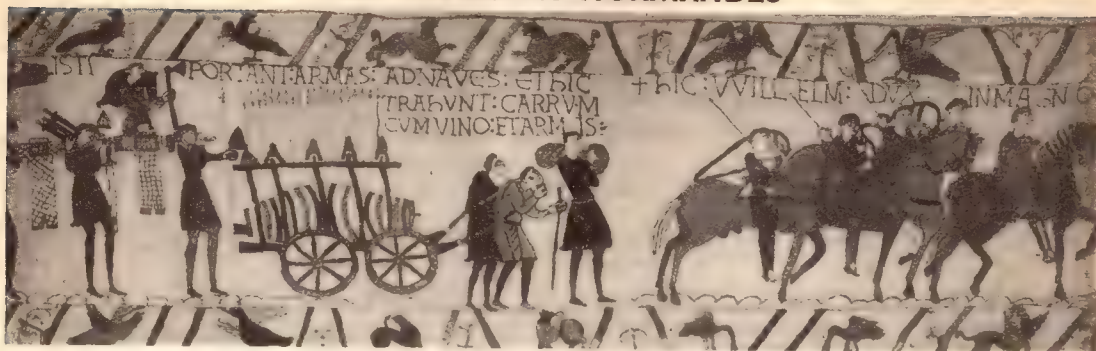 ISTI PORTANT: ARMAS: AD NAVES: ET hIC
TRAhVNT: CARRVM
CVM VINO: ET ARMIS:
+ hIC: VVILLELM: DVX IN MAGNO